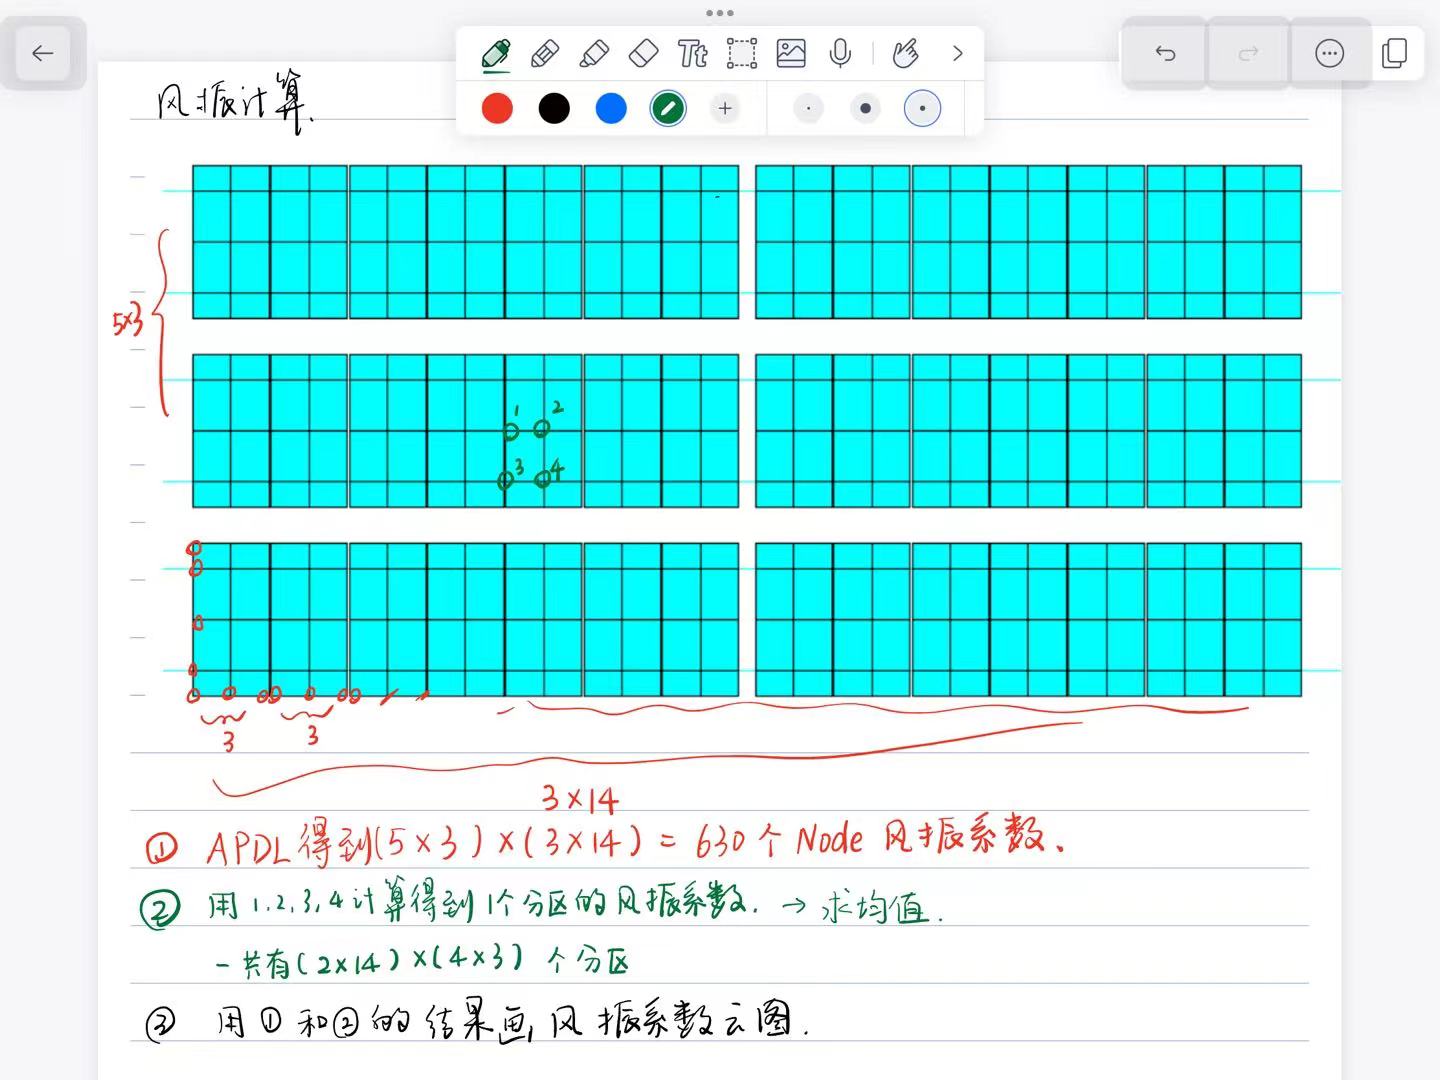 Tt
风振计算.
5×3
1 2
3 4
3 3
3×14
① APDL得到(5×3)×(3×14)=630个Node风振系数.
② 用1,2,3,4计算得到1个分区的风振系数. → 求均值.
一共有(2×14)×(4×3)个分区
③ 用①和②的结果画风振系数云图.